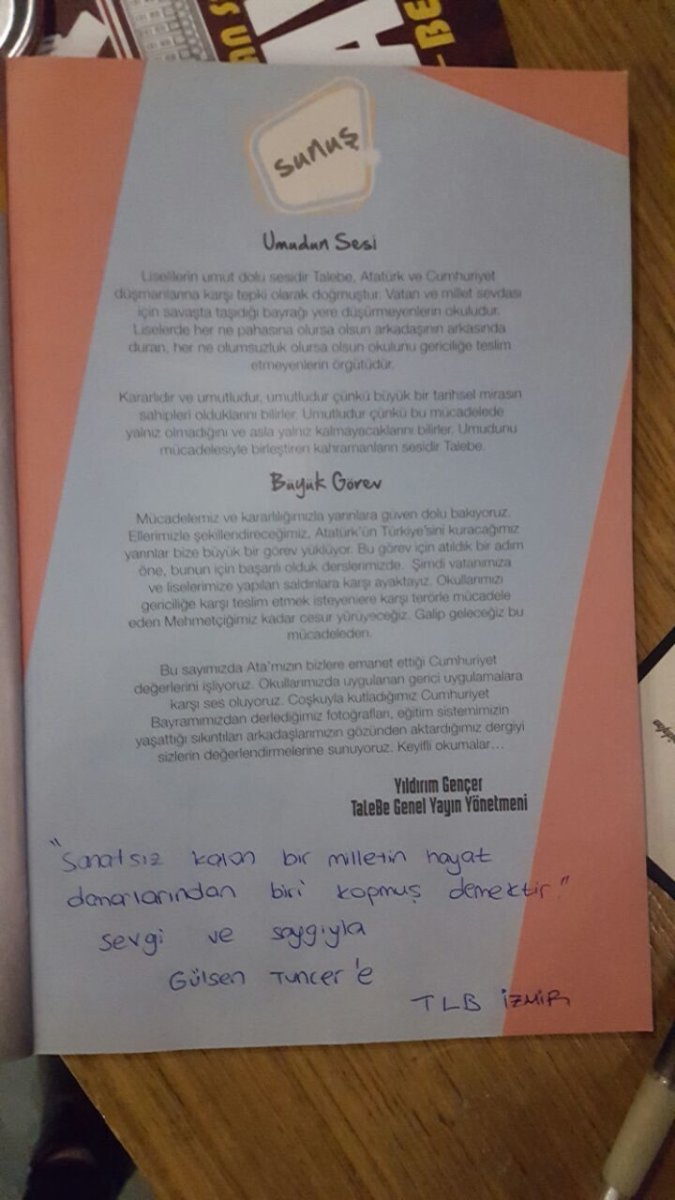 sunuş
Umudun Sesi
Liselilerin umut dolu sesidir Talebe, Atatürk ve Cumhuriyet
düşmanlarına karşı tepki olarak doğmuştur. Vatan ve millet sevdası
için savaşta taşıdığı bayrağı yere düşürmeyenlerin okuludur.
Liselerde her ne pahasına olursa olsun arkadaşının arkasında
duran, her ne olumsuzluk olursa olsun okulunu gericiliğe teslim
etmeyenlerin örgütüdür.
Kararlıdır ve umutludur, umutludur çünkü büyük bir tarihsel mirasın
sahipleri olduklarını bilirler. Umutludur çünkü bu mücadelede
yalnız olmadığını ve asla yalnız kalmayacaklarını bilirler. Umudunu
mücadelesiyle birleştiren kahramanların sesidir Talebe.
Büyük Görev
Mücadelemiz ve kararlılığımızla yarınlara güven dolu bakıyoruz.
Ellerimizle şekillendireceğimiz, Atatürk'ün Türkiye'sini kuracağımız
yarınlar bize büyük bir görev yüklüyor. Bu görev için atıldık bir adım
öne, bunun için başarılı olduk derslerimizde. Şimdi vatanımıza
ve liselerimize yapılan saldırılara karşı ayaktayız. Okullarımızı
gericiliğe karşı teslim etmek isteyenlere karşı terörle mücadele
eden Mehmetçiğimiz kadar cesur yürüyeceğiz. Galip geleceğiz bu
mücadeleden.
Bu sayımızda Ata'mızın bizlere emanet ettiği Cumhuriyet
değerlerini işliyoruz. Okullarımızda uygulanan gerici uygulamalara
karşı ses oluyoruz. Coşkuyla kutladığımız Cumhuriyet
Bayramımızdan derlediğimiz fotoğrafları, eğitim sistemimizin
yaşattığı sıkıntıları arkadaşlarımızın gözünden aktardığımız dergiyi
sizlerin değerlendirmelerine sunuyoruz. Keyifli okumalar...
Yıldırım Gençer
TaLeBe Genel Yayın Yönetmeni
"Sanatsız kalan bir milletin hayat
damarlarından biri kopmuş demektir."
sevgi ve saygıyla
Gülsen Tuncer'e
TLB İZMİR